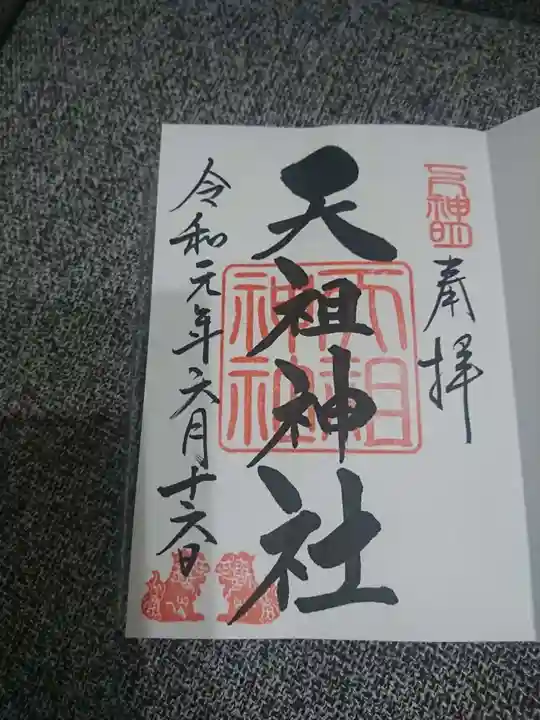 奉拝
天祖神社
天祖神社
令和元年六月十六日